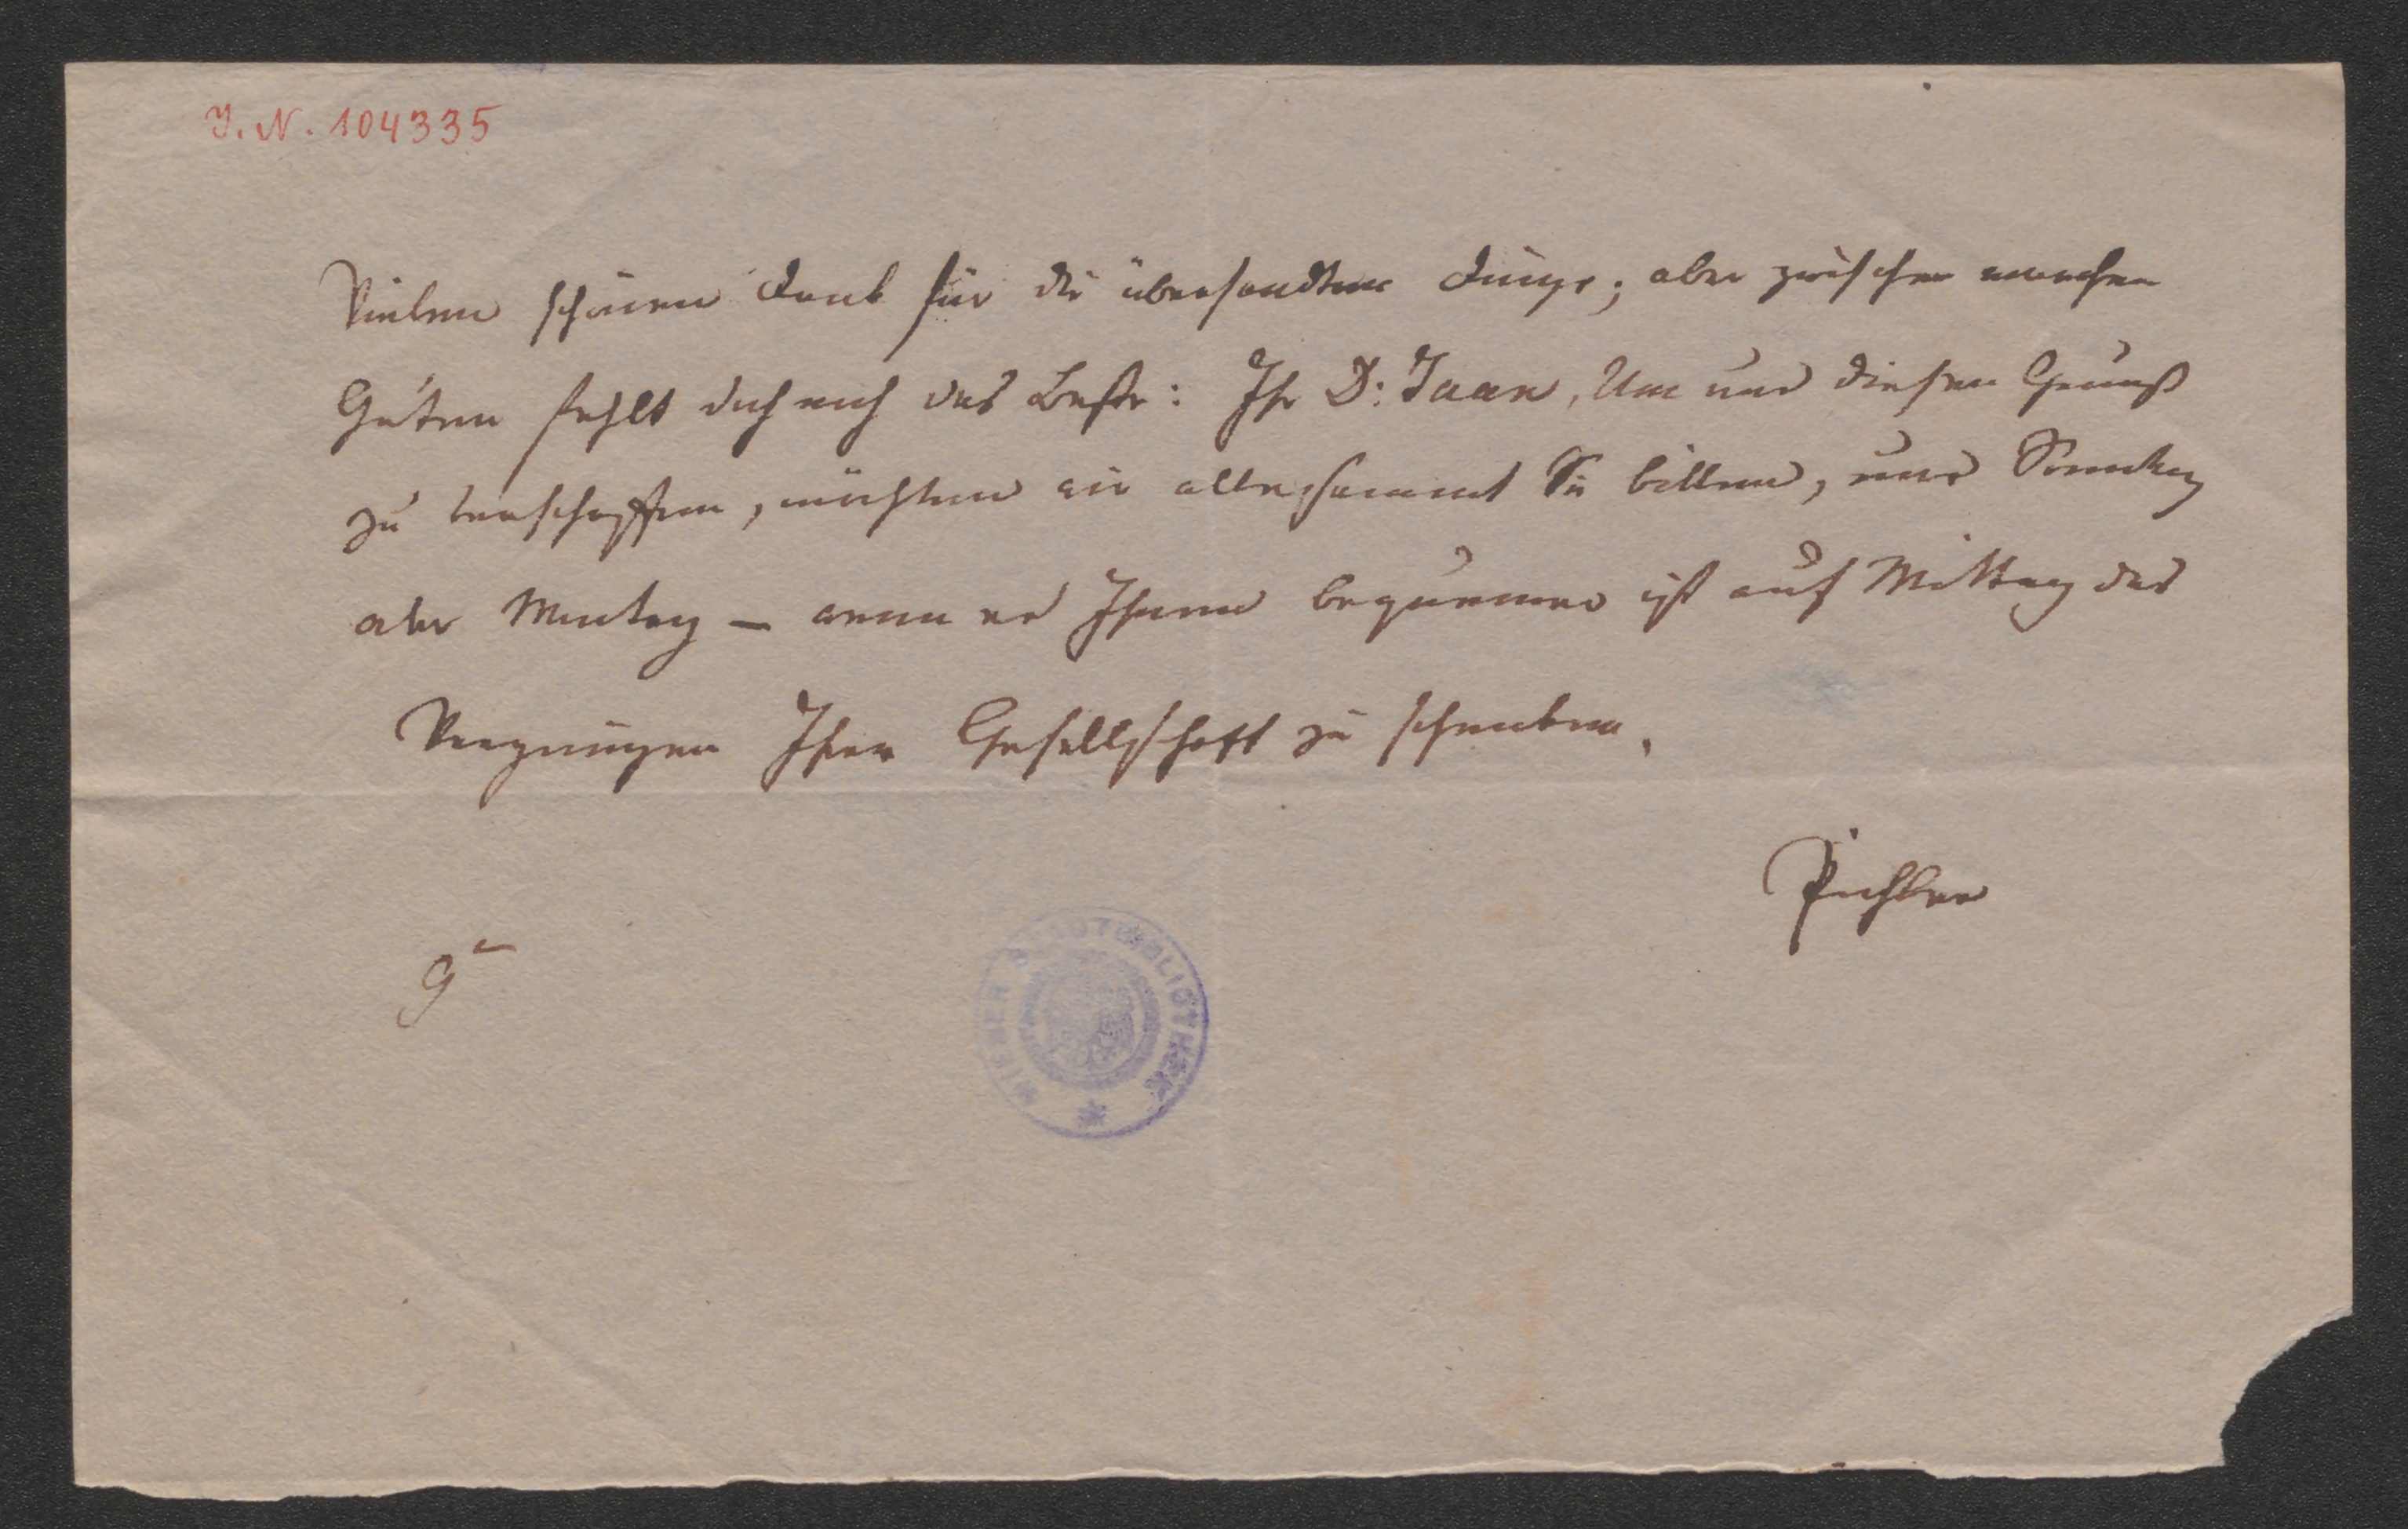 I. N. 104335
Vielen schönen Dank für die übersandten Dinge; aber zwischen manchen
Guten fehlt doch noch das Beste: Ihr D: Juan, Um uns diesen Genuß
zu verschaffen, möchten wir allesammt Sie bitten, uns Sonntag
oder Montag – wenn es Ihnen bequemer ist auf Mittag das
Vergnügen Ihrer Gesellschaft zu schenken.
Pichler
WIENER STADTBIBLIOTHEK